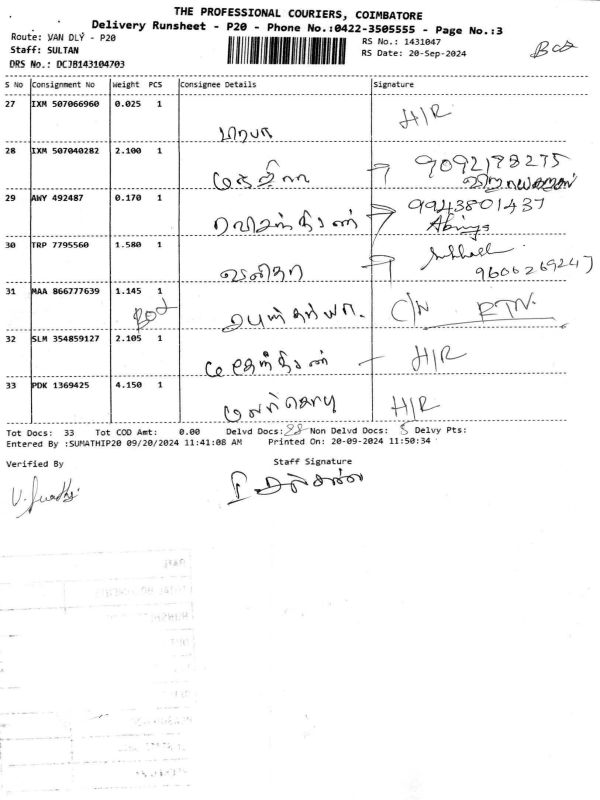 THE PROFESSIONAL COURIERS, COIMBATORE
Delivery Runsheet - P20 - Phone No.:0422-3505555 - Page No.:3
Route: VAN DLY - P20
RS No.: 1431047
Staff: SULTAN
RS Date: 20-Sep-2024
DRS No.: DCJB143104703
S No Consignment No Weight PCS Consignee Details Signature
27 IXM 507066960 0.025 1 H/R
28 IXM 507040282 2.100 1 9092178275
29 AWY 492487 0.170 1 ரவிசந்திரன் 9943801437
Abinaya
30 TRP 7795560 1.580 1 வனிதா
9606269247
31 MAA 866777639 1.145 1 C/N RTN.
32 SLM 354859127 2.105 1 மகேந்திரன் - H/R
33 PDK 1369425 4.150 1 மலர்கொடி H/R
Tot Docs: 33 Tot COD Amt: 0.00 Delvd Docs: 28 Non Delvd Docs: 5 Delvy Pts:
Entered By :SUMATHIP20 09/20/2024 11:41:08 AM Printed On: 20-09-2024 11:50:34
Verified By Staff Signature